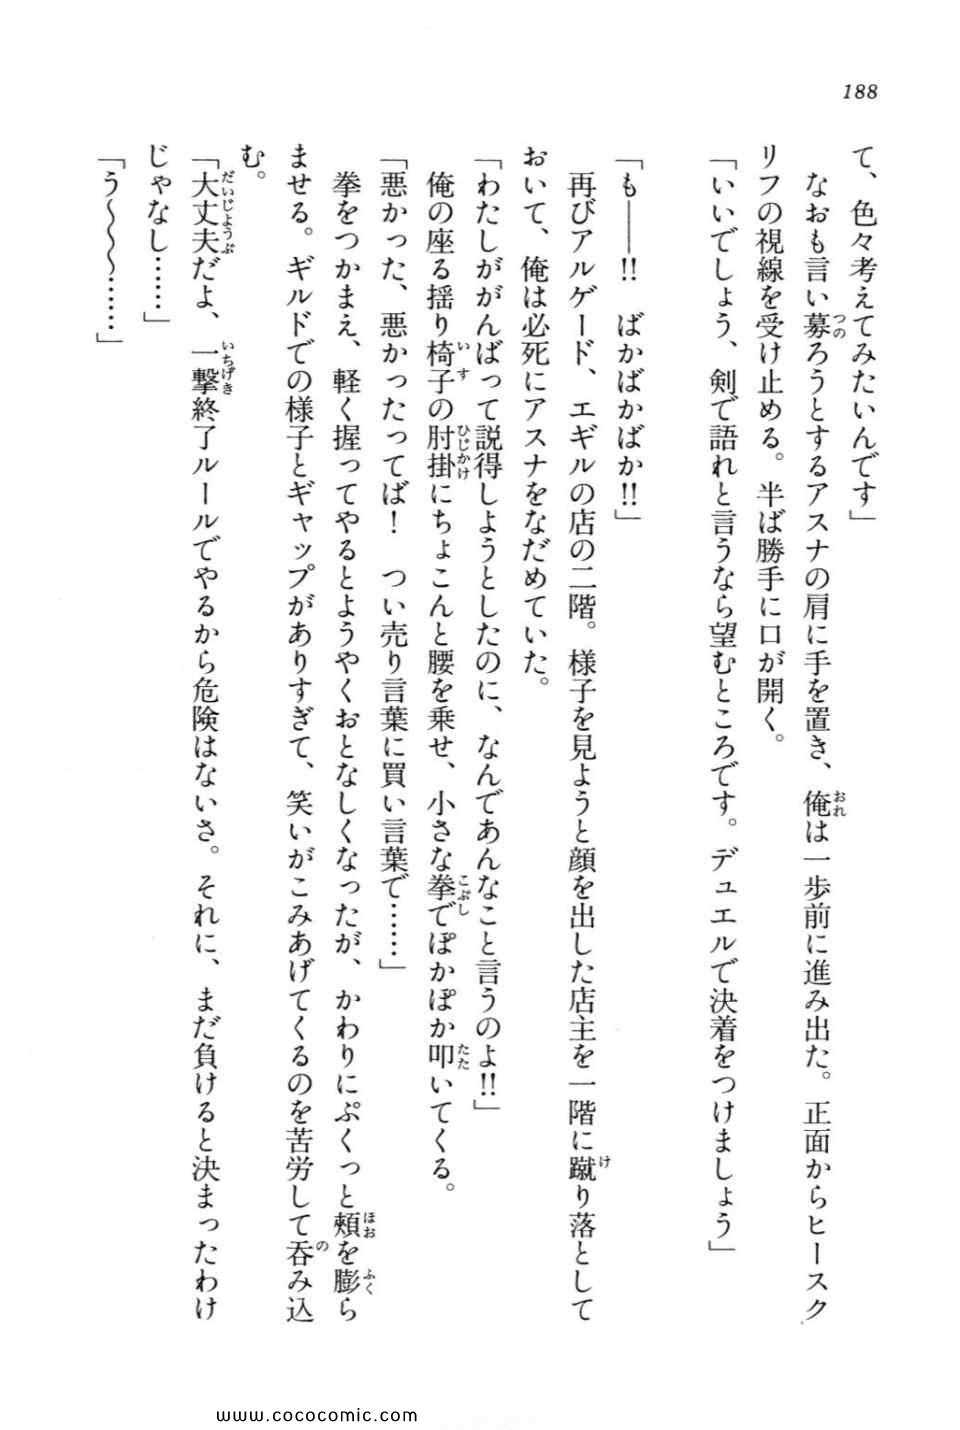 188
て、色々考えてみたいんです」
なおも言い募ろうとするアスナの肩に手を置き、俺は一歩前に進み出た。正面からヒースク
リフの視線を受け止める。半ば勝手に口が開く。
「いいでしょう、剣で語れと言うなら望むところです。デュエルで決着をつけましょう」
「も――!!　ばかばかばか!!」
再びアルゲード、エギルの店の二階。様子を見ようと顔を出した店主を一階に蹴り落として
おいて、俺は必死にアスナをなだめていた。
「わたしががんばって説得しようとしたのに、なんであんなこと言うのよ!!」
俺の座る揺り椅子の肘掛にちょこんと腰を乗せ、小さな拳でぽかぽか叩いてくる。
「悪かった、悪かったってば！　つい売り言葉に買い言葉で……」
拳をつかまえ、軽く握ってやるとようやくおとなしくなったが、かわりにぷくっと頬を膨ら
ませる。ギルドでの様子とギャップがありすぎて、笑いがこみあげてくるのを苦労して呑み込
む。
「大丈夫だよ、一撃終了ルールでやるから危険はないさ。それに、まだ負けると決まったわけ
じゃなし……」
「う～～～……」
www.cococomic.com